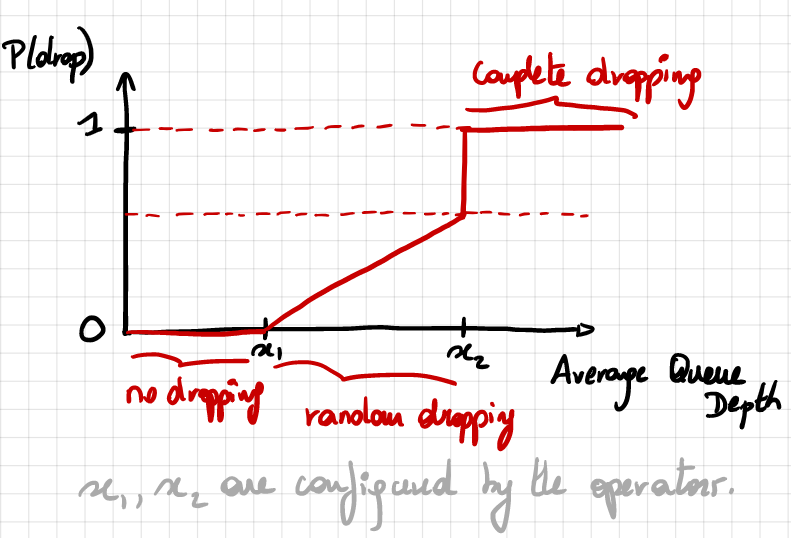 P(drop)
Complete dropping
1
0
x₁
x₂
Average Queue
Depth
no dropping
random dropping
x₁, x₂ are configured by the operator.